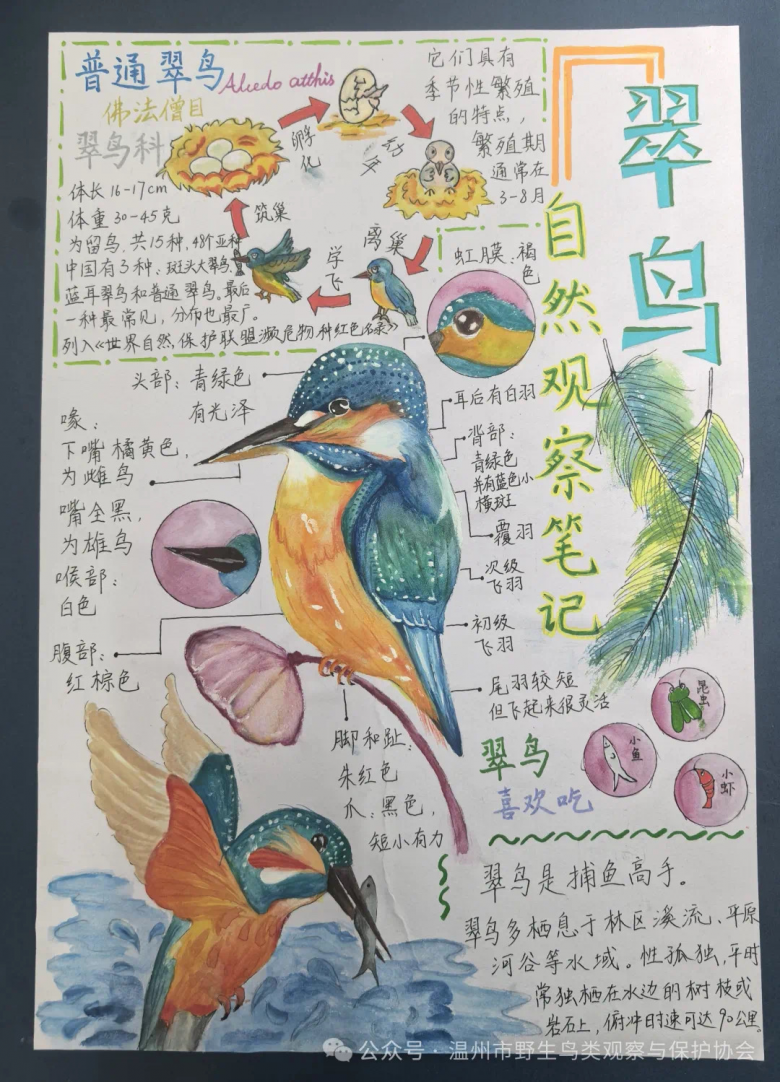 翠鸟
自然观察笔记
普通翠鸟
Alcedo atthis
佛法僧目
翠鸟科
体长16-17cm
体重30-45克
为留鸟,共15种,48个亚种
中国有3种、斑头大翠鸟、
蓝耳翠鸟和普通翠鸟。最后
一种最常见,分布也最广。
列入《世界自然保护联盟濒危物种红色名录》
筑巢
孵化
幼年
离巢
学飞
它们具有
季节性繁殖
的特点,
繁殖期
通常在
3-8月
虹膜:褐
色
头部:青绿色
有光泽
喙:
下嘴橘黄色,
为雌鸟
嘴全黑,
为雄鸟
喉部:
白色
腹部:
红棕色
耳后有白羽
背部:
青绿色
并有蓝色小
横斑
覆羽
次级
飞羽
初级
飞羽
尾羽较短
但飞起来很灵活
脚和趾:
朱红色
爪:黑色,
短小有力
翠鸟
喜欢吃
昆虫
小鱼
小虾
翠鸟是捕鱼高手。
翠鸟多栖息于林区溪流、平原
河谷等水域。性孤独,平时
常独栖在水边的树枝或
岩石上,俯冲时速可达90公里。
公众号·温州市野生鸟类观察与保护协会